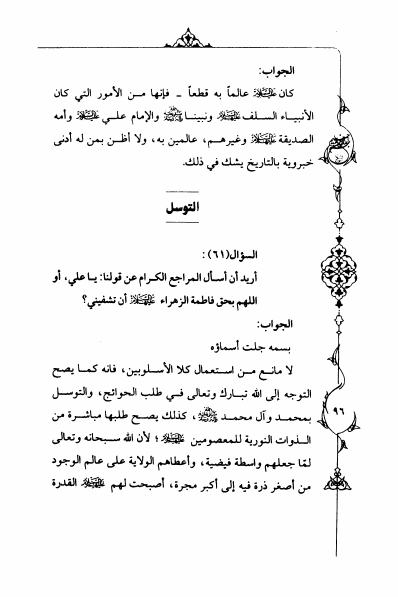 الجواب:
كان عليه السلام عالماً به قطعاً - فإنها من الأمور التي كان
الأنبياء السلف عليهم السلام ونبينا صلى الله عليه وآله والإمام علي عليه السلام وأمه
الصديقة عليها السلام وغيرهم، عالمين به، ولا أظن بمن له أدنى
خبروية بالتاريخ يشك في ذلك.
التوسل
السؤال(٦١):
أريد أن أسأل المراجع الكرام عن قولنا: يا علي، أو
اللهم بحق فاطمة الزهراء عليها السلام أن تشفيني؟
الجواب:
بسمه جلت أسماؤه
لا مانع من استعمال كلا الأسلوبين، فانه كما يصح
التوجه إلى الله تبارك وتعالى في طلب الحوائج، والتوسل
بمحمد وآل محمد صلى الله عليه وآله، كذلك يصح طلبها مباشرة من
الذوات النورية للمعصومين عليهم السلام؛ لأن الله سبحانه وتعالى
لمّا جعلهم واسطة فيضية، وأعطاهم الولاية على عالم الوجود
من أصغر ذرة فيه إلى أكبر مجرة، أصبحت لهم عليهم السلام القدرة
٩٦